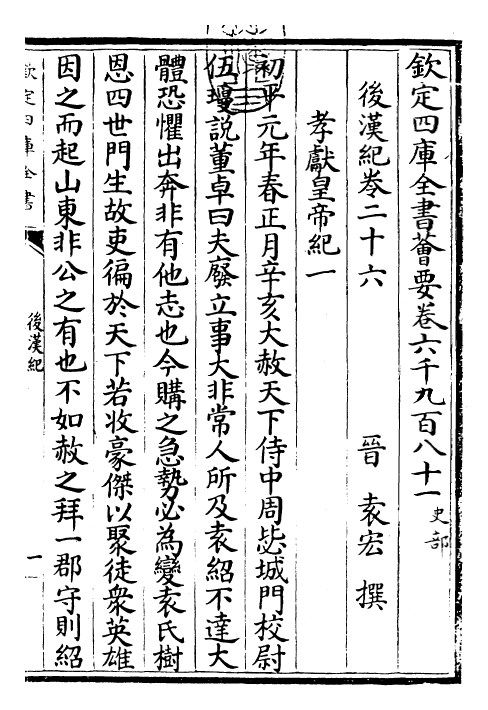 欽定四庫全書薈要卷六千九百八十一 史部
後漢紀卷二十六 晉 袁宏 撰
孝獻皇帝紀一
初平元年春正月辛亥大赦天下侍中周毖城門校尉
伍瓊説董卓曰夫廢立事大非常人所及袁紹不達大
體恐懼出奔非有他志也今購之急勢必為變袁氏樹
恩四世門生故吏徧於天下若收豪傑以聚徒衆英雄
因之而起山東非公之有也不如赦之拜一郡守則紹
欽定四庫全書
後漢紀
一